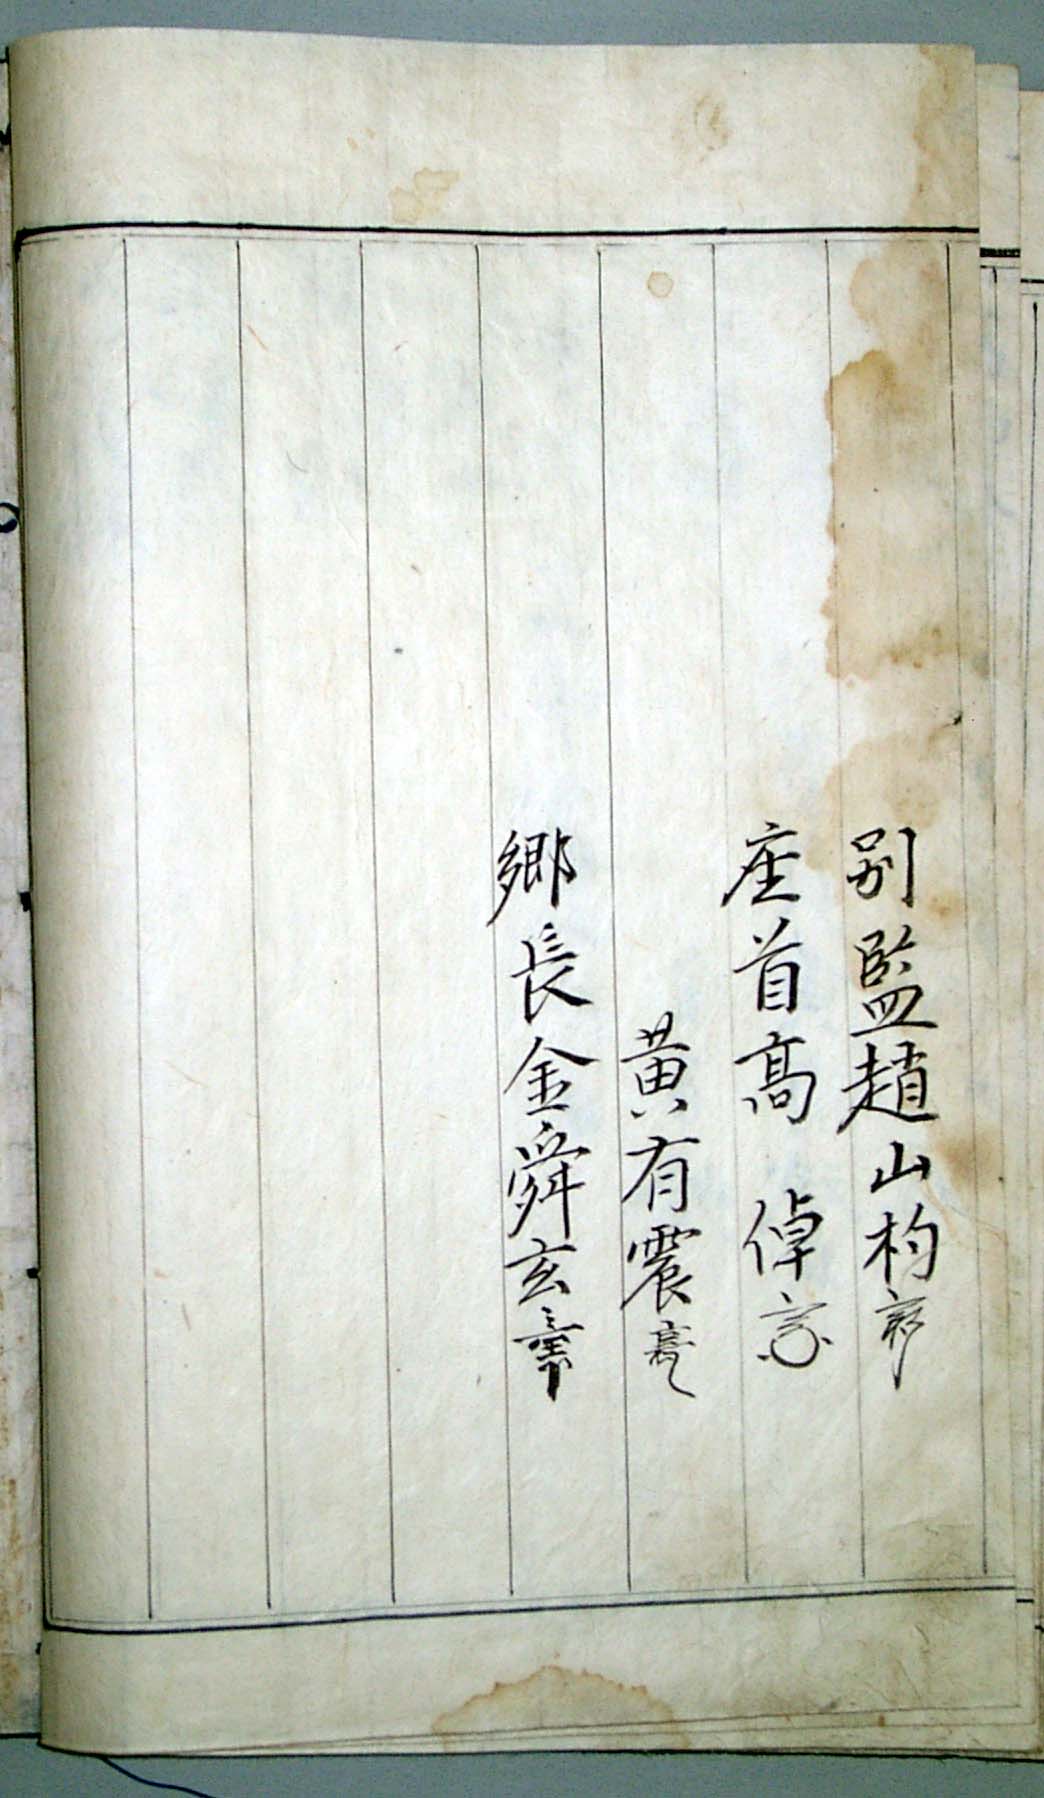 別監趙山杓
座首高 倬
黄有震
鄉長金舜玄